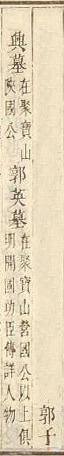 郭子
興墓
在聚寶山
陝國公
郭英墓
在聚寶山營國公以上俱
明開國功臣傳詳人物